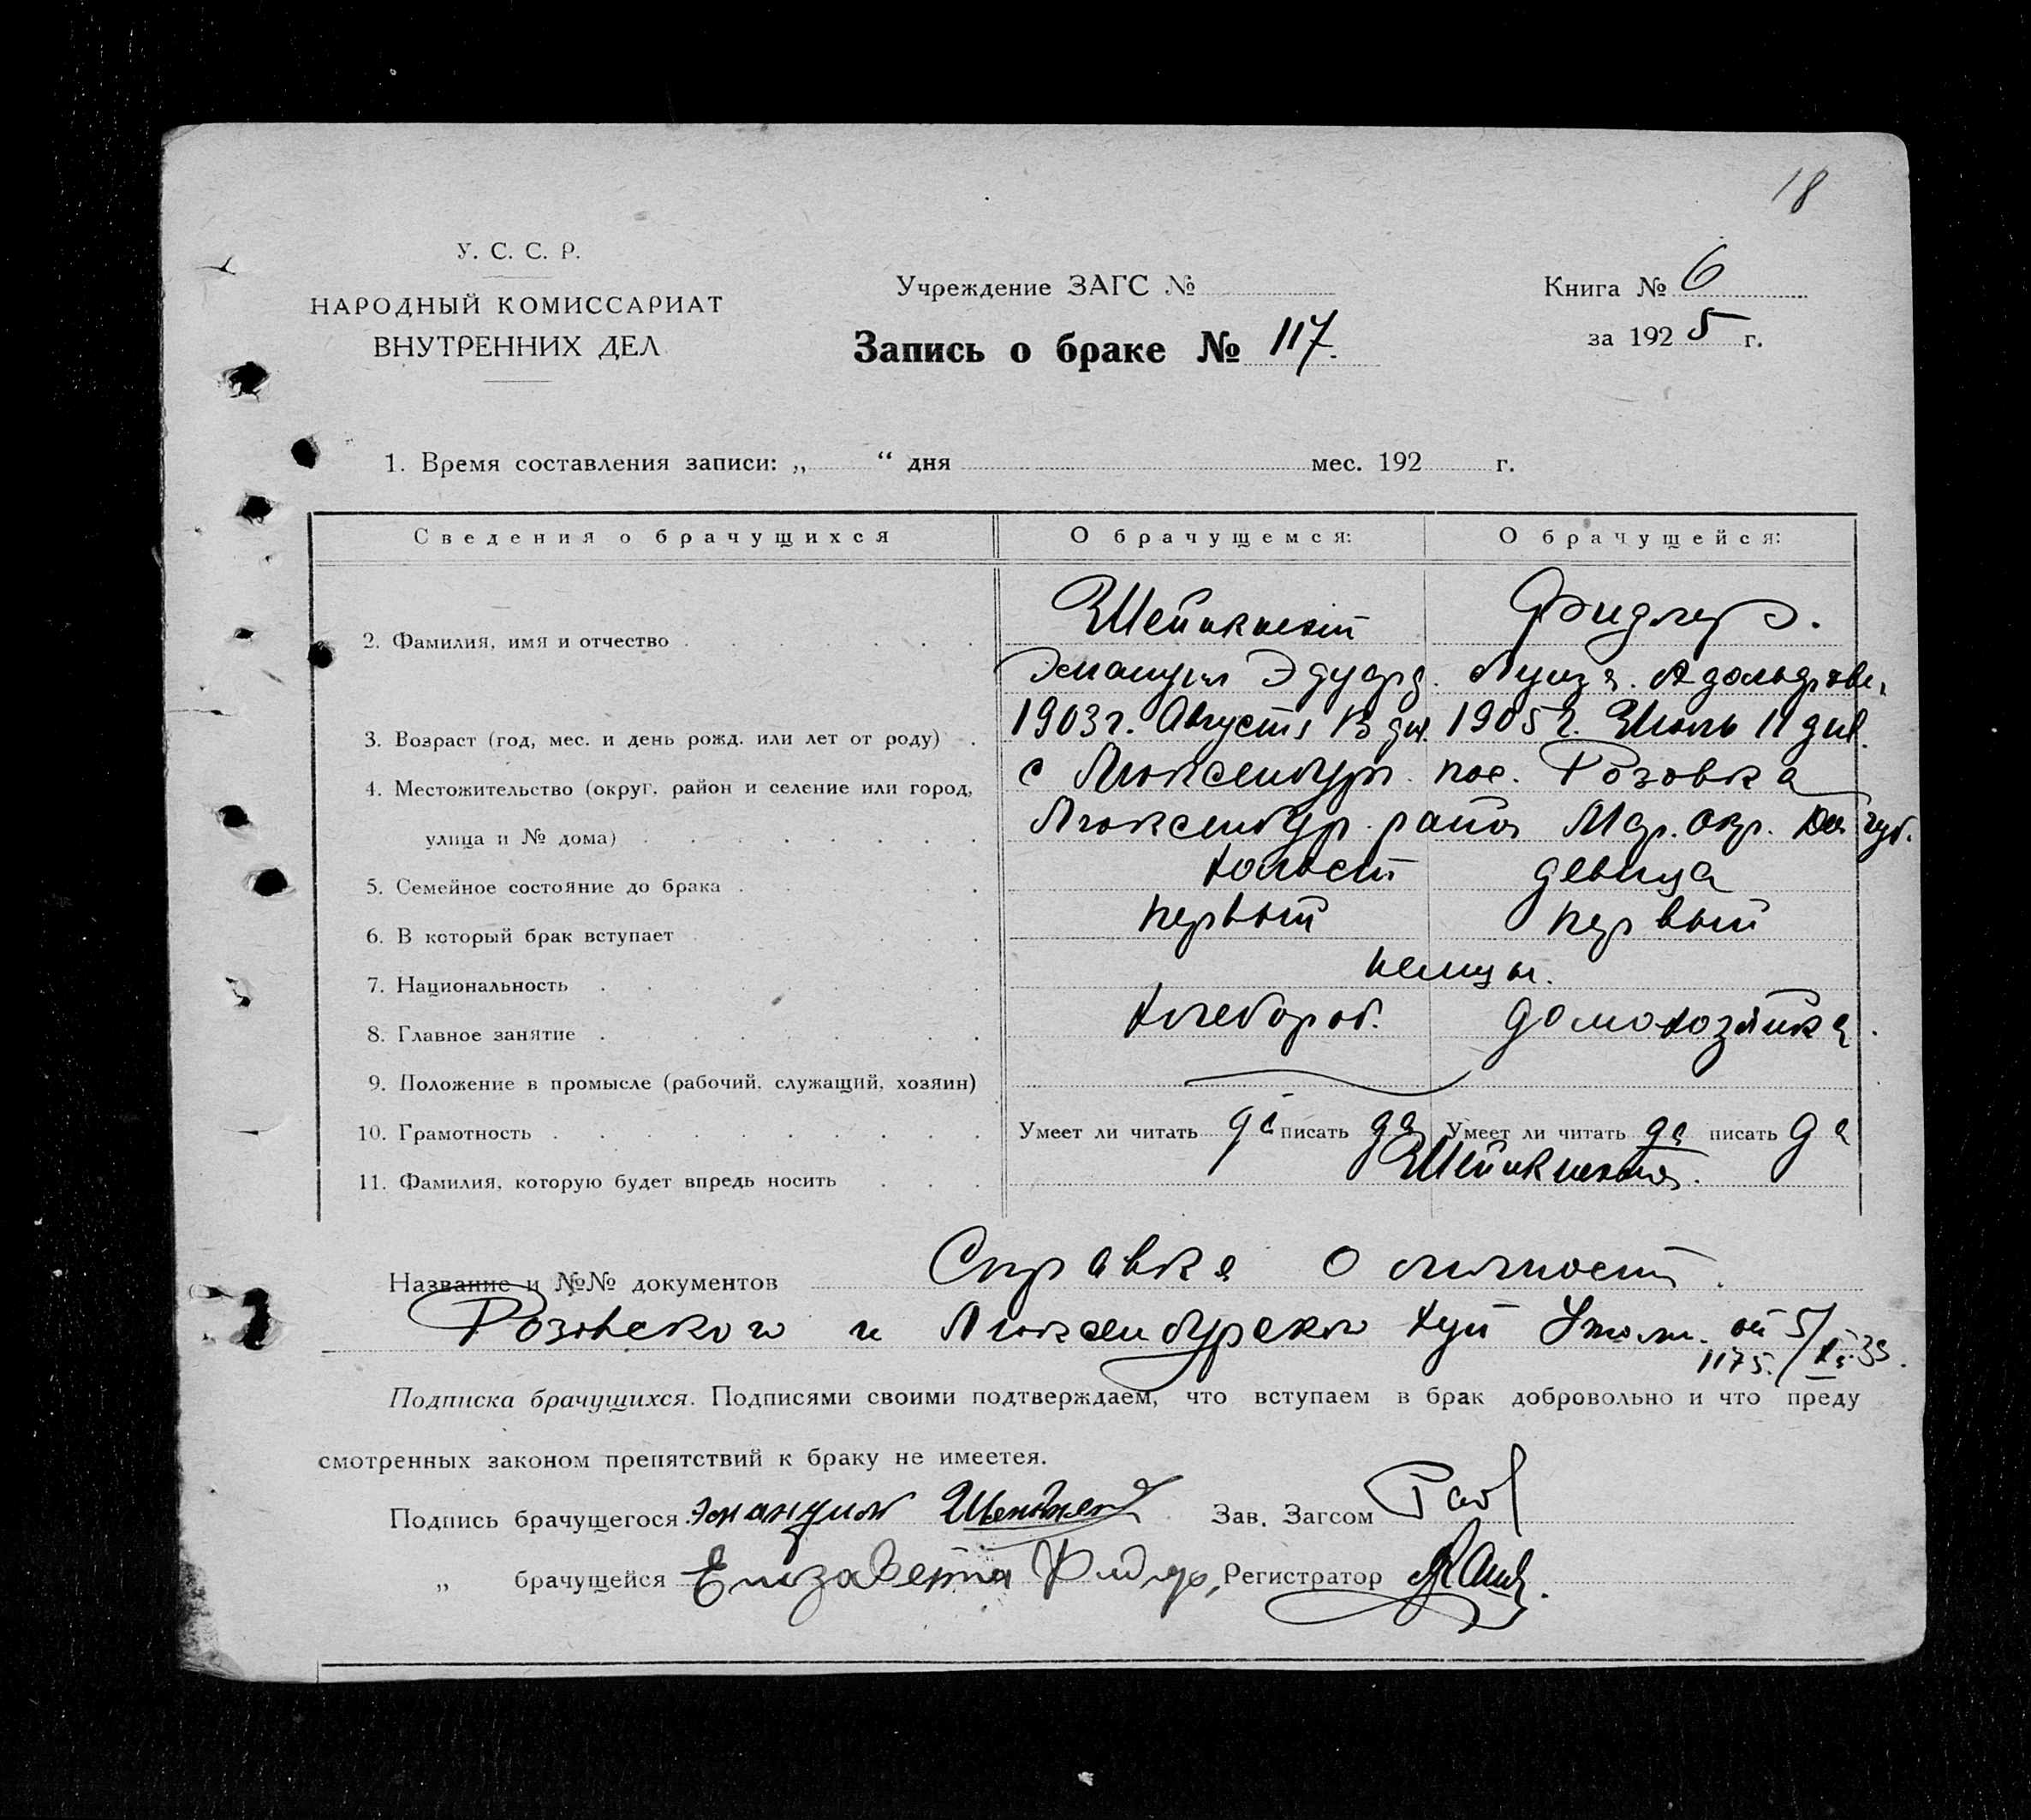 18
У. С. С. Р.
НАРОДНЫЙ КОМИССАРИАТ
ВНУТРЕННИХ ДЕЛ
Учреждение ЗАГС №
Запись о браке № 117.
Книга № 6
за 1925 г.
1. Время составления записи: „ “ дня мес. 192 г.
Сведения о брачущихся О брачущемся: О брачущейся:
Фидлер.
2. Фамилия, имя и отчество
Эдуард. Луиза. Адольфовн
3. Возраст (год, мес. и день рожд. или лет от роду) 1903 г. Августа 13 дн. 1905 г. Июль 11 дня.
4. Местожительство (округ, район и селение или город, с Люксембург. пос. Розовка
улица и № дома) Люксембур. района Мар. окр. Дон губ.
5. Семейное состояние до брака холост девица
6. В который брак вступает первый первый
7. Национальность немцы.
8. Главное занятие хлебороб. домохозяйка.
9. Положение в промысле (рабочий, служащий, хозяин)
10. Грамотность Умеет ли читать да писать да Умеет ли читать да писать да
11. Фамилия, которую будет впредь носить
Название и №№ документов Справка о личност.
Розовского и Люксембурского от 5/
1175.
Подписка брачущихся. Подписями своими подтверждаем, что вступаем в брак добровольно и что преду
смотренных законом препятствий к браку не имеетея.
Подпись брачущегося Эмануил Зав. Загсом
„ брачущейся Елизавета Фидлер, Регистратор